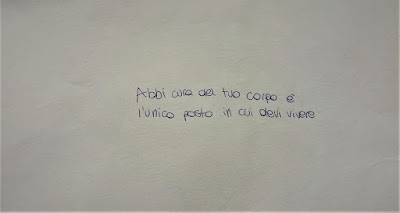 Abbi cura del tuo corpo è
l'unico posto in cui devi vivere